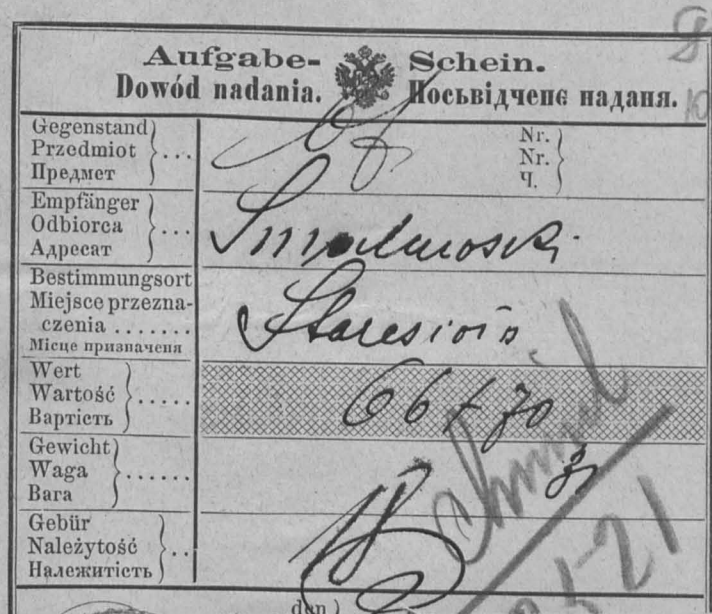 Aufgabe- Schein.
Dowód nadania. Посьвідченє наданя.
Gegenstand Nr.
Przedmiot ... Nr.
Предмет Ч.
Empfänger
Odbiorca ...
Адресат
Bestimmungsort
Miejsce przezna-
czenia .......
Місце призначеня
Wert
Wartość .....
Вартість
66 f 70
Gewicht
Waga ......
Вага
Gebür
Należytość ..
Належитість
den